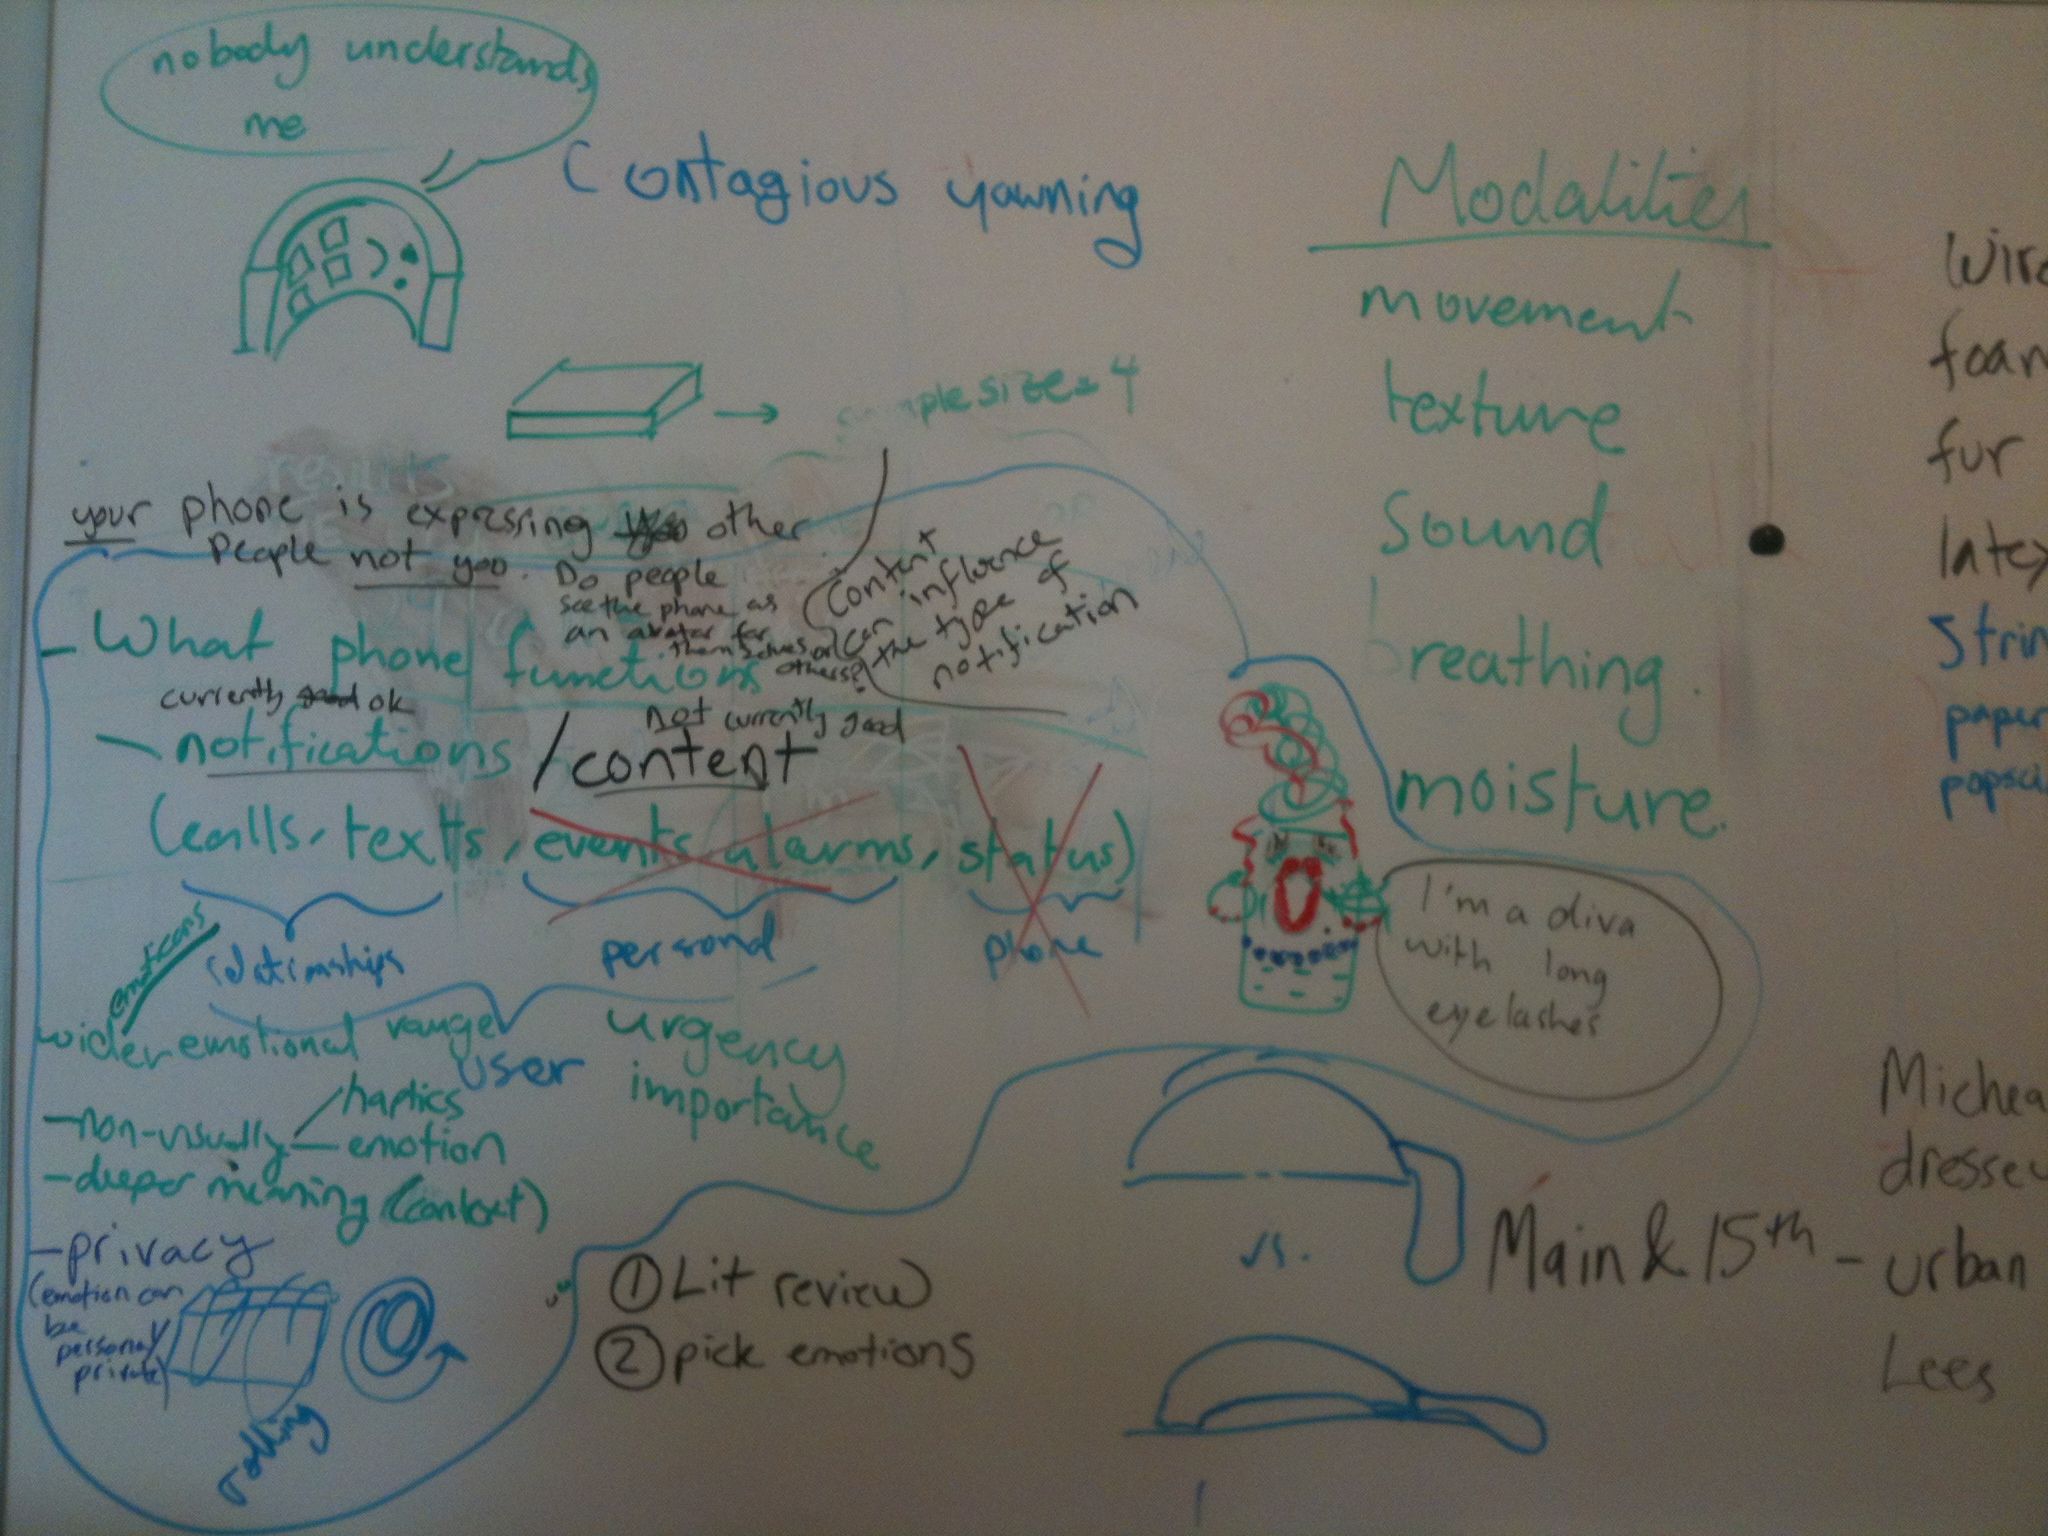 nobody understands
me
Contagious yawning
sample size = 4
results
your phone is expressing other
people not you.
Do people
see the phone as
an avatar for
themselves or
others?
Content
can influence
the type of
notification
- What phone functions
currently good ok
Not currently good
- notifications / content
(calls, texts, events alarms, status)
relationships
personal
phone
emoticons
wider emotional range
user
urgency
importance
- non-visually
haptics
emotion
- deeper meaning (context)
- privacy
(emotion can
be
personal/
private)
rolling
① Lit review
② pick emotions
Modalities
movement
texture
sound
breathing.
moisture.
I'm a diva
with long
eyelashes
vs.
Main & 15th -
fur
urban
Lees